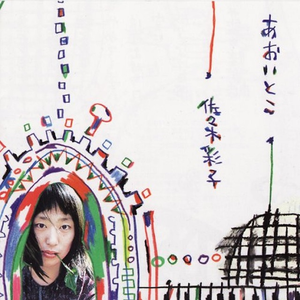 あおいとこ
佐々木彩子